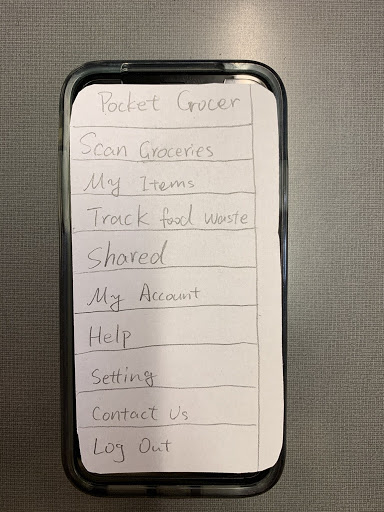 Pocket Grocer
Scan Groceries
My Items
Track food waste
Shared
My Account
Help
Setting
Contact Us
Log Out